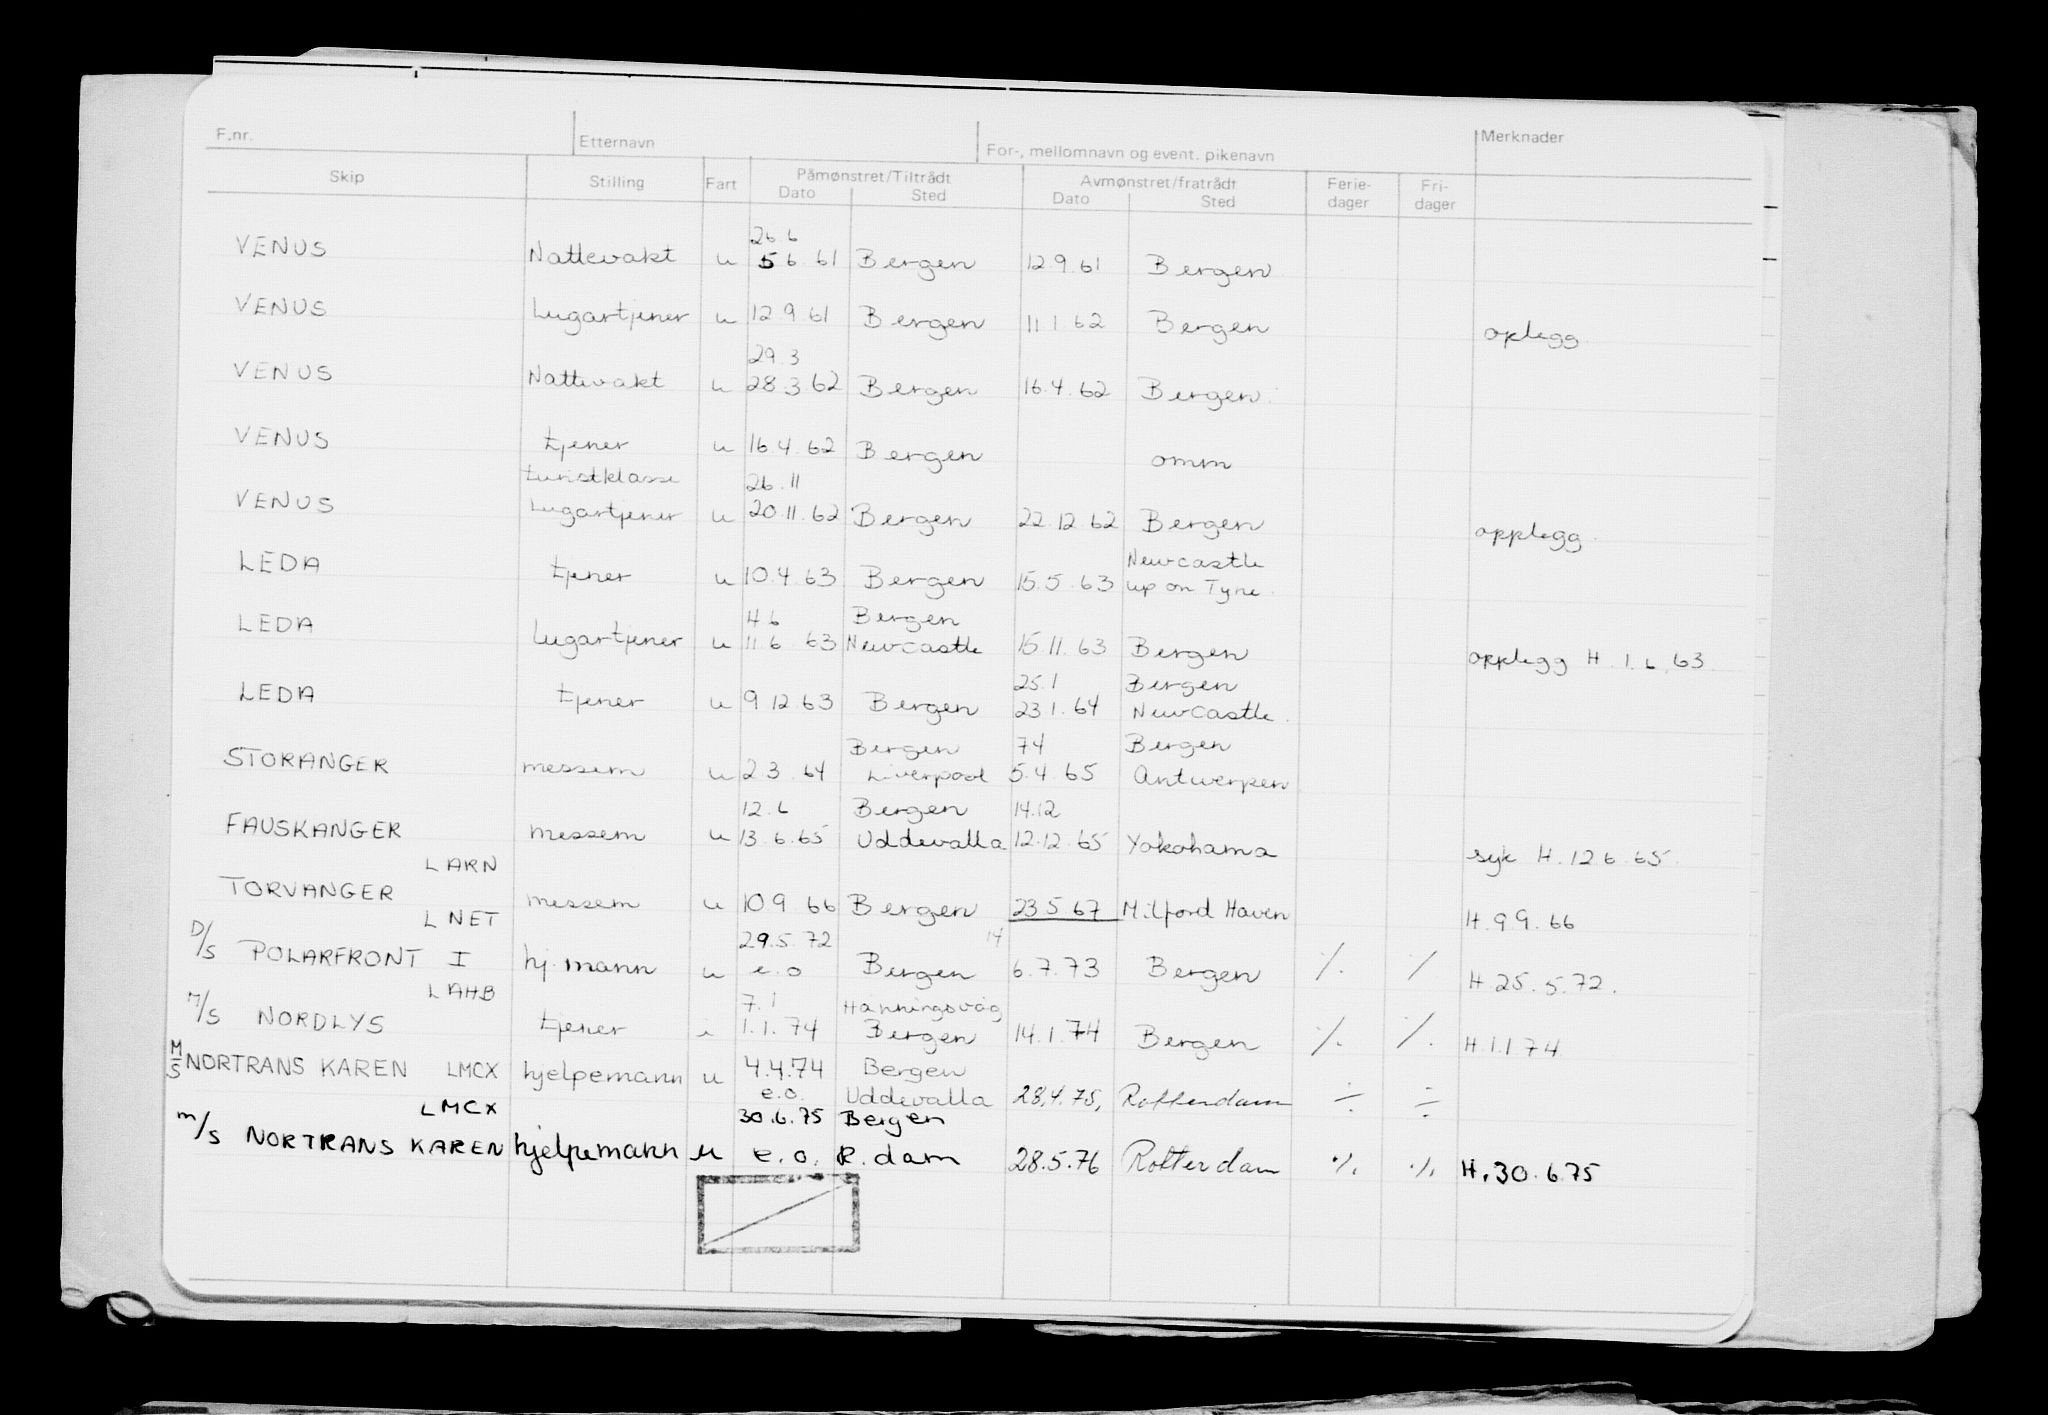 F.nr. Etternavn For-, mellomnavn og event. pikenavn Merknader
Skip Stilling Fart Påmønstret/Tiltrådt Avmønstret/fratrådt Ferie- Fri-
Dato Sted Dato Sted dager dager
26.6
VENUS Nattevakt u 5 6.61 Bergen 12.9.61 Bergen
VENUS Lugartjener u 12.9.61 Bergen 11.1.62 Bergen oplegg.
29.3
VENUS Nattevakt u 28.3.62 Bergen 16.4.62 Bergen.
VENUS tjener u 16.4.62 Bergen omm
turistklasse 26.11
VENUS Lugartjener u 20.11.62 Bergen 22.12.62 Bergen opplegg.
Newcastle
LEDA tjener u 10.4.63 Bergen 15.5.63 up on Tyne.
4 6 Bergen
LEDA Lugartjener u 11.6 63 Newcastle 15.11.63 Bergen opplegg H.1.6.63
25.1 Bergen
LEDA tjener u 9 12 63 Bergen 23 1.64 Newcastle.
Bergen 74 Bergen
STORANGER messem u 2 3.64 Liverpool 5.4.65 Antwerpen
12.6 Bergen 14.12
FAUSKANGER messem u 13.6.65 Uddevalla 12.12.65 Yokohama syk H.12 6.65.
LARN
TORVANGER messem u 10 9.66 Bergen 23 5 67 Milford Haven H.9 9.66
LNET
29.5.72 14
D/S POLARFRONT I hj.mann u e.o Bergen 6.7.73 Bergen ./. ./. H.25.5.72.
LAHB
7.1 Hanningsvåg
M/S NORDLYS tjener i 1.1.74 Bergen 14.1.74 Bergen ./. ./. H.1.1 74
M/S NORTRANS KAREN LMCX hjelpemann u 4.4.74 Bergen
e.o. Uddevalla 28.4.75, Rotterdam ÷ ÷
LMCX 30.6.75 Bergen
m/s NORTRANS KAREN hjelpemann u e.o. R.dam 28.5.76 Rotterdam ./. ./. H.30.6.75